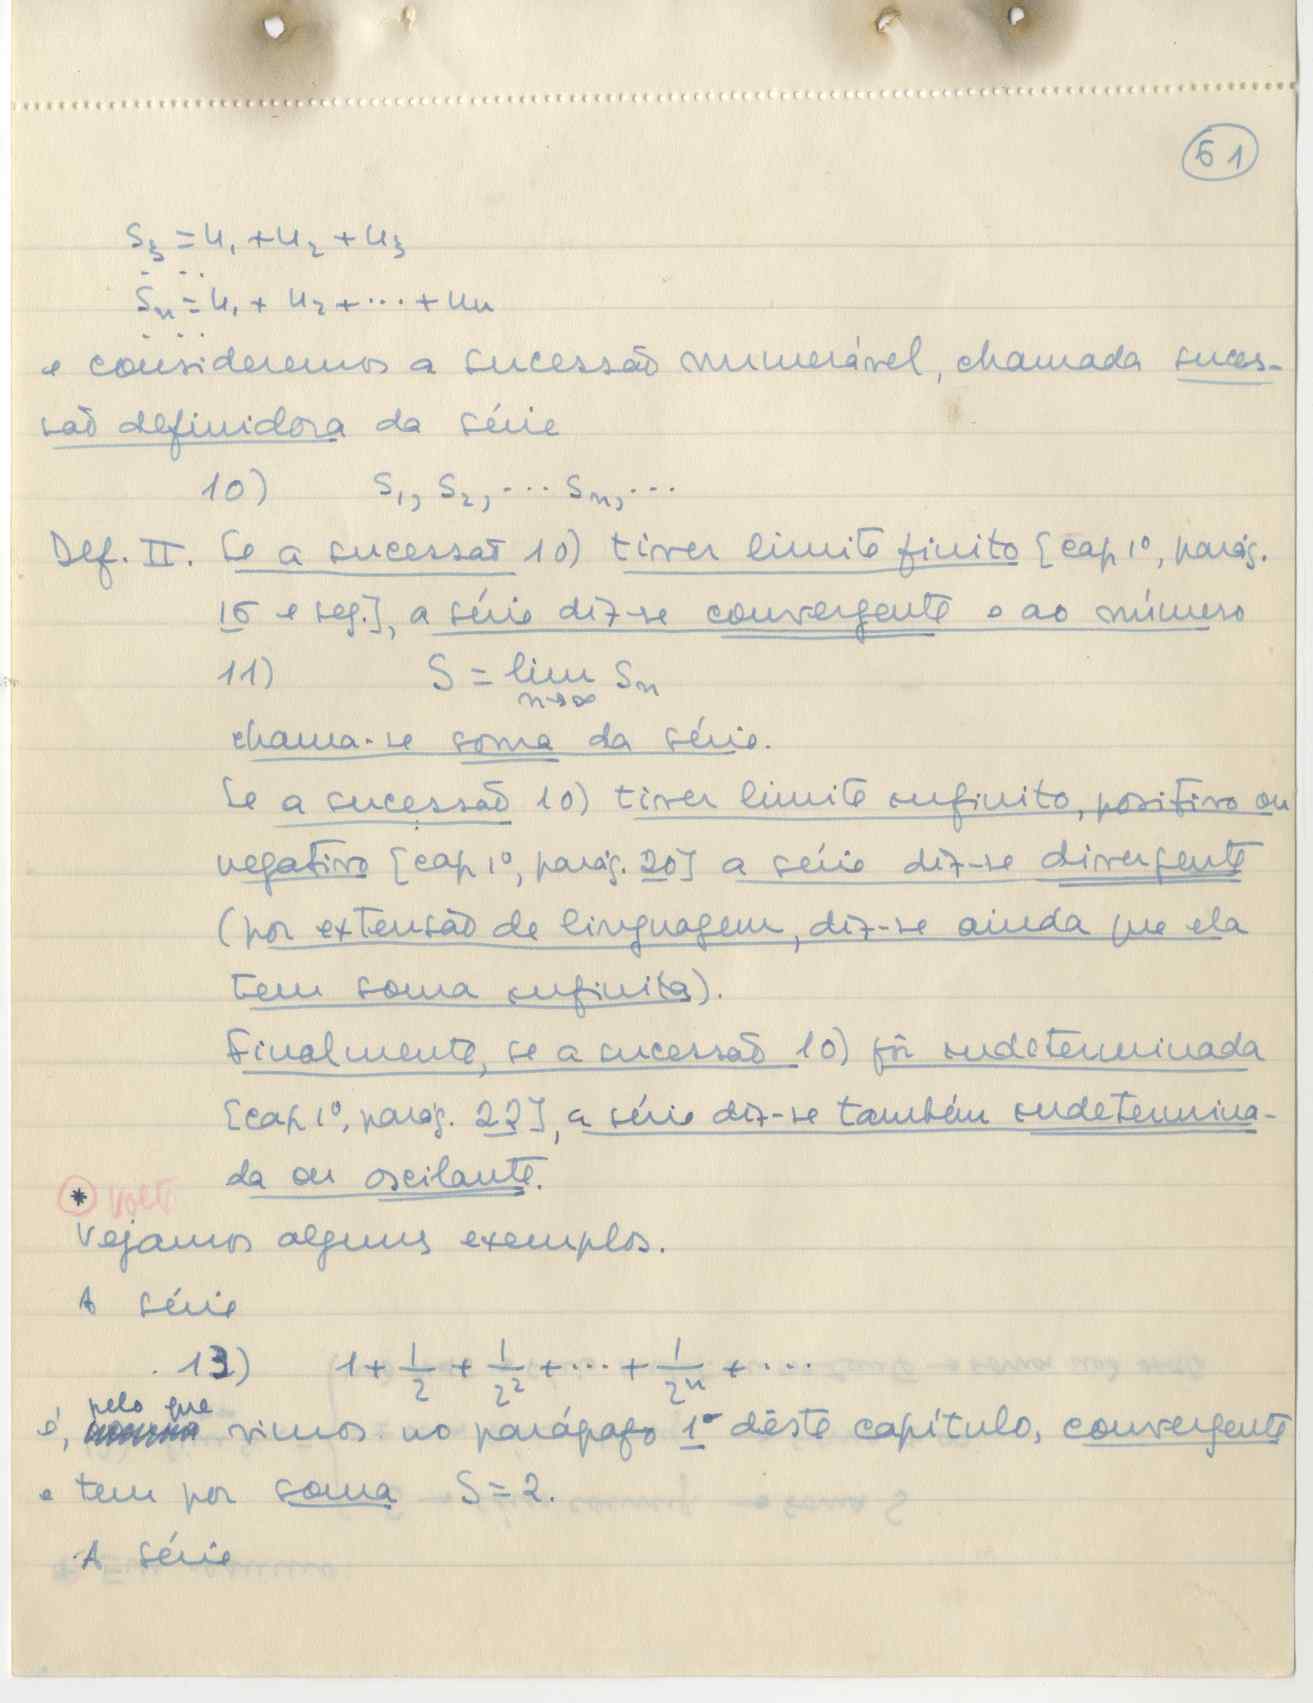 61
S₃ = u₁ + u₂ + u₃
. . .
Sₙ = u₁ + u₂ + ··· + uₙ
. . .
e consideremos a sucessão numerável, chamada suces-
são definidora da série
10) S₁, S₂, ··· Sₙ, ···
Def. II. Se a sucessão 10) tiver limite finito [cap 1º, parág.
15 e seg.], a série diz-se convergente e ao número
11) S = lim Sₙ
n→∞
chama-se soma da série.
Se a sucessão 10) tiver limite infinito, positivo ou
negativo [cap 1º, parág. 20] a série diz-se divergente
(por extensão de linguagem, diz-se ainda que ela
tem soma infinita).
Finalmente, se a sucessão 10) fôr indeterminada
[cap 1º, parág. 22], a série diz-se também indetermina-
da ou oscilante.
* Volte
Vejamos alguns exemplos.
A série
13) 1 + 1/2 + 1/2² + ··· + 1/2ⁿ + ···
pelo que
é, vimos no parágrafo 1º dêste capítulo, convergente
e tem por soma S = 2.
A série